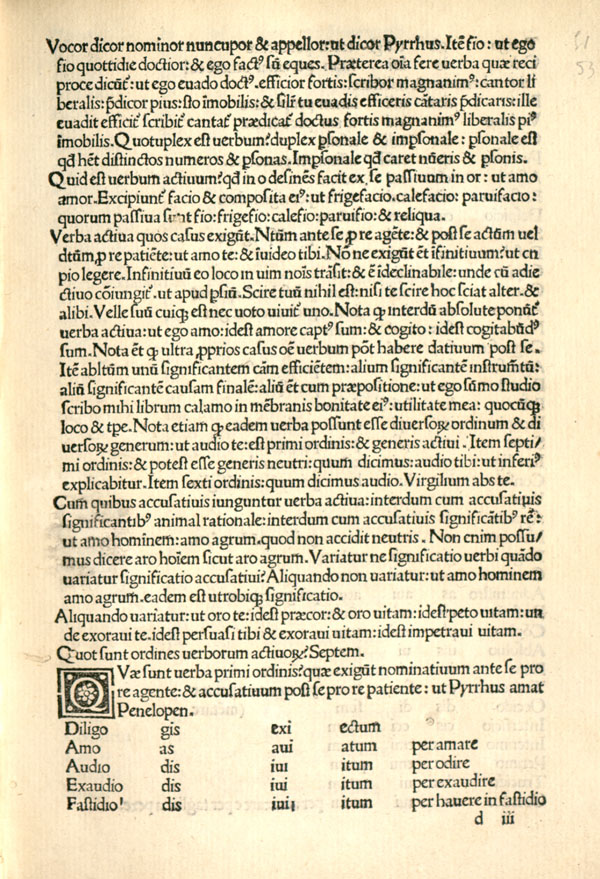 Vocor dicor nominor nuncupor & appellor: ut dicor Pyrrhus. Itē fio: ut ego
fio quottidie doctior: & ego factꝰ sū eques. Præterea oīa fere uerba quæ reci
proce dicūt᷑: ut ego euado doctꝰ. efficior fortis: scribor magnanimꝰ: cantor li
beralis: p̄dicor pius: sto īmobilis: & sil̄r tu euadis efficeris cātaris p̄dicaris: ille
euadit efficit᷑ scribit᷑ cantat᷑ prædicat᷑ doctus fortis magnanimꝰ liberalis piꝰ
īmobilis. Quotuplex est uerbum? duplex ꝑsonale & impsonale: ꝑsonale est
qd̄ hēt distinctos numeros & ꝑsonas. Impsonale qd̄ caret nūeris & ꝑsonis.
Quid est uerbum actiuum? qd̄ in o desinēs facit ex se passiuum in or: ut amo
amor. Excipiunt᷑ facio & composita eiꝰ: ut frigefacio. calefacio: paruifacio:
quorum passiua sunt fio: frigefio: calefio: paruifio: & reliqua.
Verba actiua quos casus exigūt. Ntūm ante se ꝓ re agēte: & post se actūm uel
dtūm, ꝓ re patiēte: ut amo te: & īuideo tibi. Nōne exigūt ēt īfinitiuum? ut cu
pio legere. Infinitiuū eo loco in uim noīs trāsit: & ē ideclinabile: unde cū adie
ctiuo cōiungit᷑. ut apud psiū. Scire tuū nihil est: nisi te scire hoc sciat alter. &
alibi. Velle suū cuiqꝫ est nec uoto uiuit᷑ uno. Nota ꝙ interdū absolute ponūt᷑
uerba actiua: ut ego amo: idest amore captꝰ sum: & cogito: idest cogitabūdꝰ
sum. Nota ēt ꝙ ultra ꝓprios casus oē uerbum pōt habere datiuum post se.
Itē abltūm unū significantem cām efficiētem: alium significantē instrumētū:
aliū significantē causam finalē: aliū ēt cum præpositione: ut ego sūmo studio
scribo mihi librum calamo in mēbranis bonitate eiꝰ: utilitate mea: quocūqꝫ
loco & tpe. Nota etiam ꝙ eadem uerba possunt esse diuersoꝝ ordinum & di
uersoꝝ generum: ut audio te: est primi ordinis: & generis actiui. Item septi/
mi ordinis: & potest esse generis neutri: quum dicimus: audio tibi: ut inferiꝰ
explicabitur. Item sexti ordinis: quum dicimus audio. Virgilium abs te.
Cum quibus accusatiuis iunguntur uerba actiua: interdum cum accusatiuis
significantibꝰ animal rationale: interdum cum accusatiuis significātibꝰ rē:
ut amo hominem: amo agrum. quod non accidit neutris. Non enim possu/
mus dicere aro hoīem sicut aro agrum. Variatur ne significatio uerbi quādo
uariatur significatio accusatiui? Aliquando non uariatur: ut amo hominem
amo agrum. eadem est utrobiqꝫ significatio.
Aliquando uariatur: ut oro te: idest præcor: & oro uitam: idest peto uitam: un
de exoraui te. idest persuasi tibi & exoraui uitam: idest impetraui uitam.
Quot sunt ordines uerborum actiuoꝝ? Septem.
QVæ sunt uerba primi ordinis? quæ exigūt nominatiuum ante se pro
re agente: & accusatiuum post se pro re patiente: ut Pyrrhus amat
Penelopen.
Diligo gis exi ectum
Amo as aui atum per amare
Audio dis iui itum per odire
Exaudio dis iui itum per exaudire
Fastidio dis iui itum per hauere in fastidio
d iii